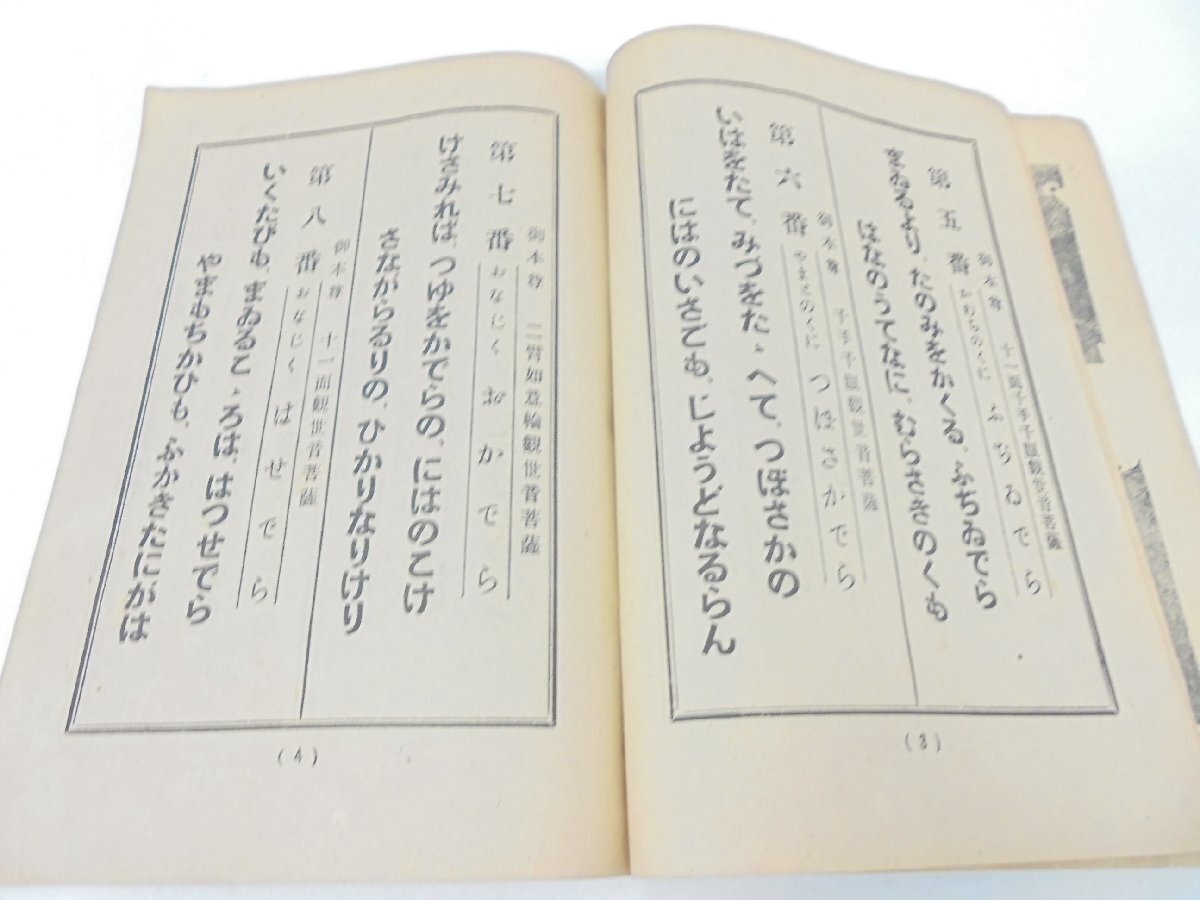 第五番
御本尊 十一面千手千眼観世音菩薩
かわちのくに ふぢゐでら
まゐるより、たのみをかくる、ふぢゐでら
はなのうてなに、むらさきのくも
第六番
御本尊 千手千眼観世音菩薩
やまとのくに つぼさかでら
いはをたて、みづをたゝへて、つぼさかの
にはのいさごも、じようどなるらん
(3)
第七番
御本尊 二臂如意輪観世音菩薩
おなじく おかでら
けさみれば、つゆをかでらの、にはのこけ
さながらるりの、ひかりなりけり
第八番
御本尊 十一面観世音菩薩
おなじく はせでら
いくたびも、まゐるこゝろは、はつせでら
やまもちかひも、ふかきたにがは
(4)